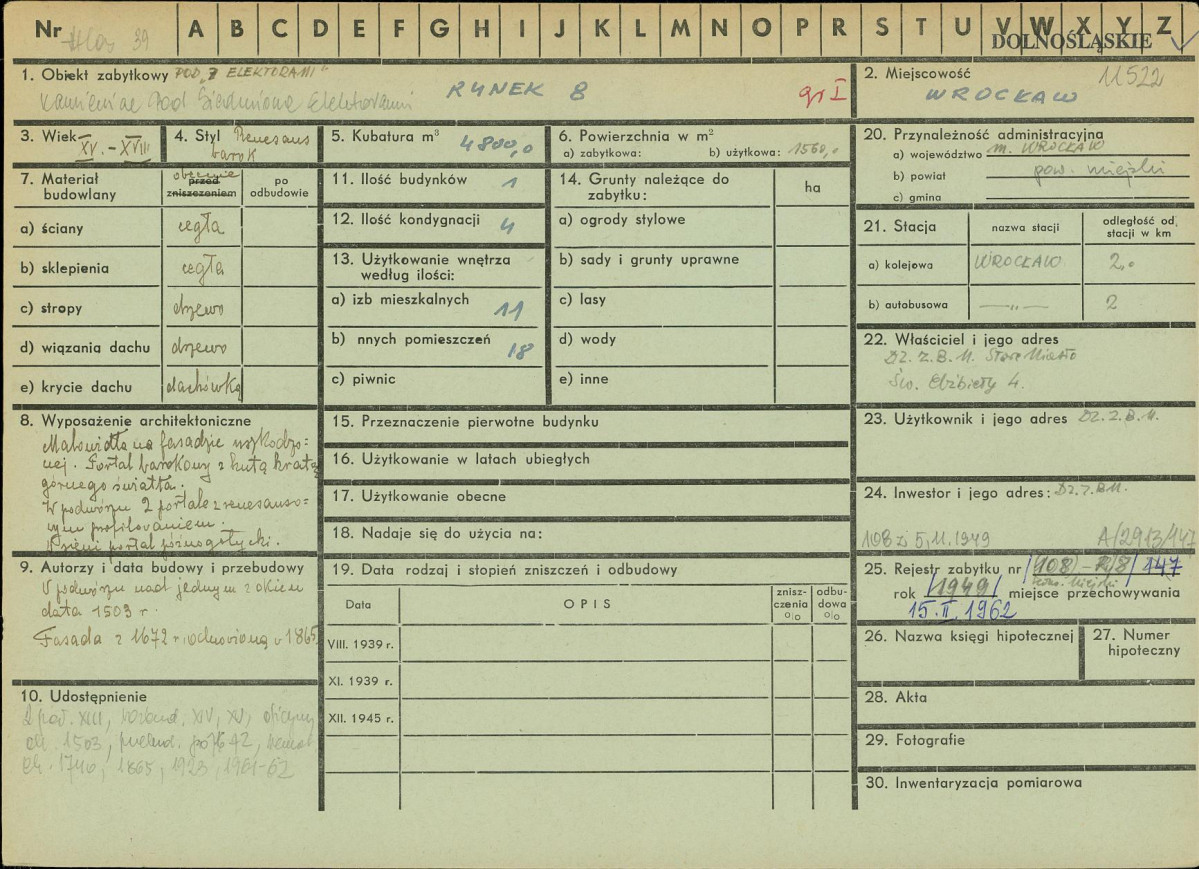 Nr 39 A B C D E F G H I J K L M N O P R S T U V W X Y Z
DOLNOŚLĄSKIE
1. Obiekt zabytkowy POD „7 ELEKTORAMI"
Kamienica Pod Siedmioma Elektorami RYNEK 8 gr I
2. Miejscowość 11522
WROCŁAW
3. Wiek XV. - XVIII
4. Styl Renesans
barok
5. Kubatura m³ 4800,0
6. Powierzchnia w m²
a) zabytkowa: b) użytkowa: 1560,0
7. Materiał budowlany
obecnie
przed zniszczeniem
po odbudowie
a) ściany cegła
b) sklepienia cegła
c) stropy drzewo
d) wiązania dachu drzewo
e) krycie dachu dachówka
8. Wyposażenie architektoniczne
Malowidła na fasadzie uszkodzo=
nej. Portal barokowy z kutą kratą
górnego światła.
W podwórzu 2 portale z renesanso=
wym profilowaniem.
W sieni portal późnogotycki.
9. Autorzy i data budowy i przebudowy
W podwórzu nad jednym z okien
data 1503 r.
Fasada z 1672 r. odnowiona w 1865
10. Udostępnienie
2 poł. XIII, rozbud. XIV, XV, oficyny
ok. 1503, przebud. 
ok. 1740, 1865, 1923, 1961-62
11. Ilość budynków 1
12. Ilość kondygnacji 4
13. Użytkowanie wnętrza
według ilości:
a) izb mieszkalnych 11
b) nnych pomieszczeń 18
c) piwnic
14. Grunty należące do
zabytku: ha
a) ogrody stylowe
b) sady i grunty uprawne
c) lasy
d) wody
e) inne
15. Przeznaczenie pierwotne budynku
16. Użytkowanie w latach ubiegłych
17. Użytkowanie obecne
18. Nadaje się do użycia na:
19. Data rodzaj i stopień zniszczeń i odbudowy
Data OPIS znisz-
czenia
%
odbu-
dowa
%
VIII. 1939 r.
XI. 1939 r.
XII. 1945 r.
20. Przynależność administracyjna
a) województwo m. WROCŁAW
b) powiat pow. miejski
c) gmina
21. Stacja nazwa stacji odległość od
stacji w km
a) kolejowa WROCŁAW 2,0
b) autobusowa —„— 2
22. Właściciel i jego adres
DZ. Z. B. M. Stare Miasto
Św. Elżbiety 4.
23. Użytkownik i jego adres DZ. Z. B. M.
24. Inwestor i jego adres: DZ. Z. B M.
108 z 5.11.1949 A/2913/147
25. Rejestr zabytku nr /108/ - R/8/ 147
rok /1949/ miejsce przechowywania
15. II. 1962
26. Nazwa księgi hipotecznej
27. Numer
hipoteczny
28. Akta
29. Fotografie
30. Inwentaryzacja pomiarowa